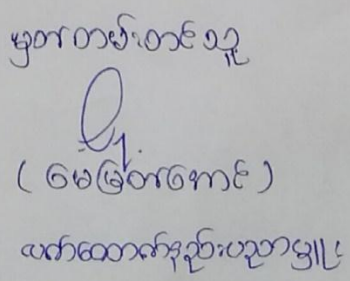 မှတ်တမ်းတင်သူ
(မေမြတ်အောင်)
လက်ထောက်နည်းပညာမှူး